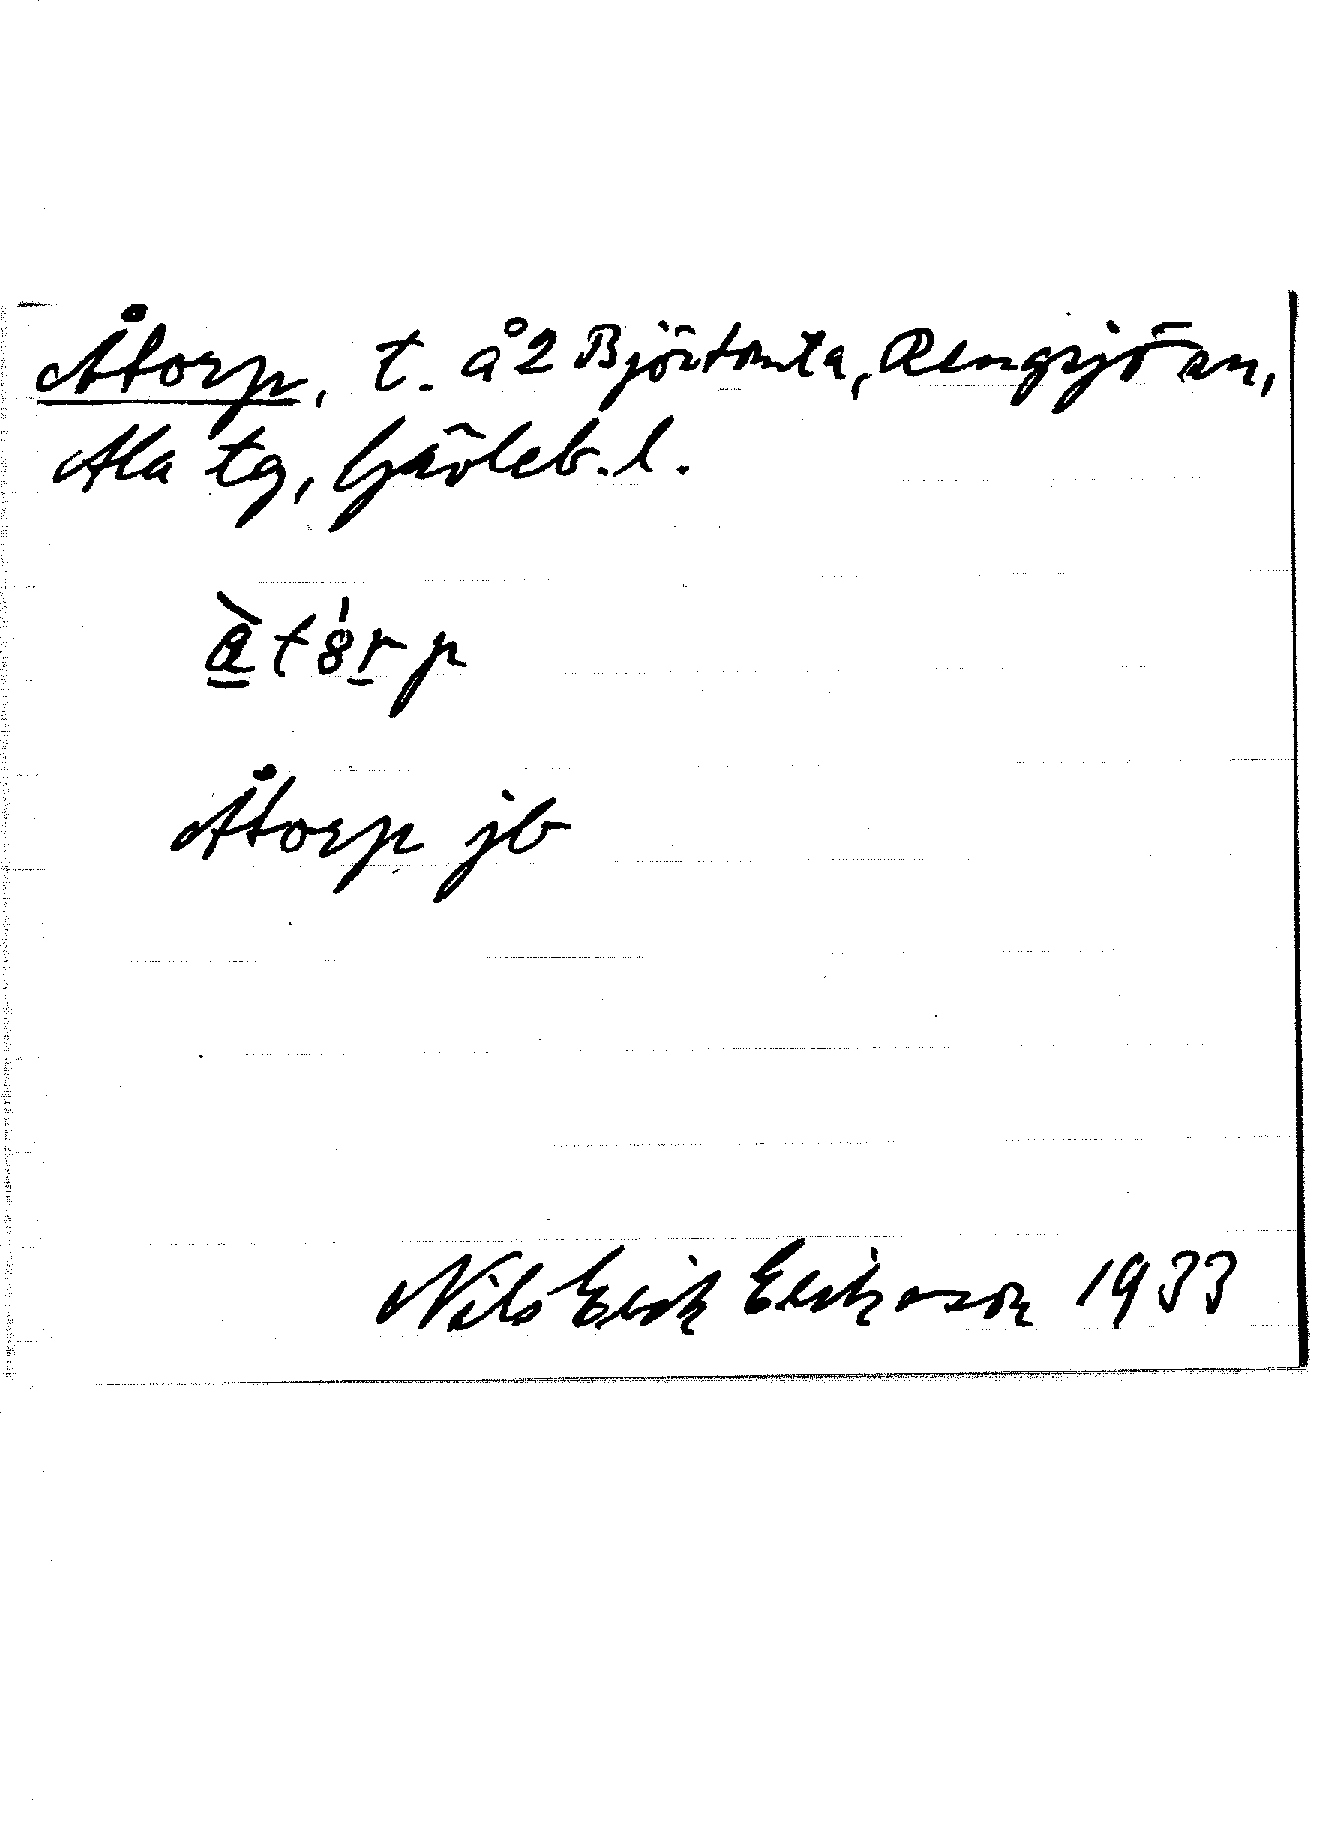 Åtorp, t. å 2 Björtomta, Rengsjö sn,
Ala tg, Gävleb. l.
Åtorp jb
Nils Erik Eriksson 1933